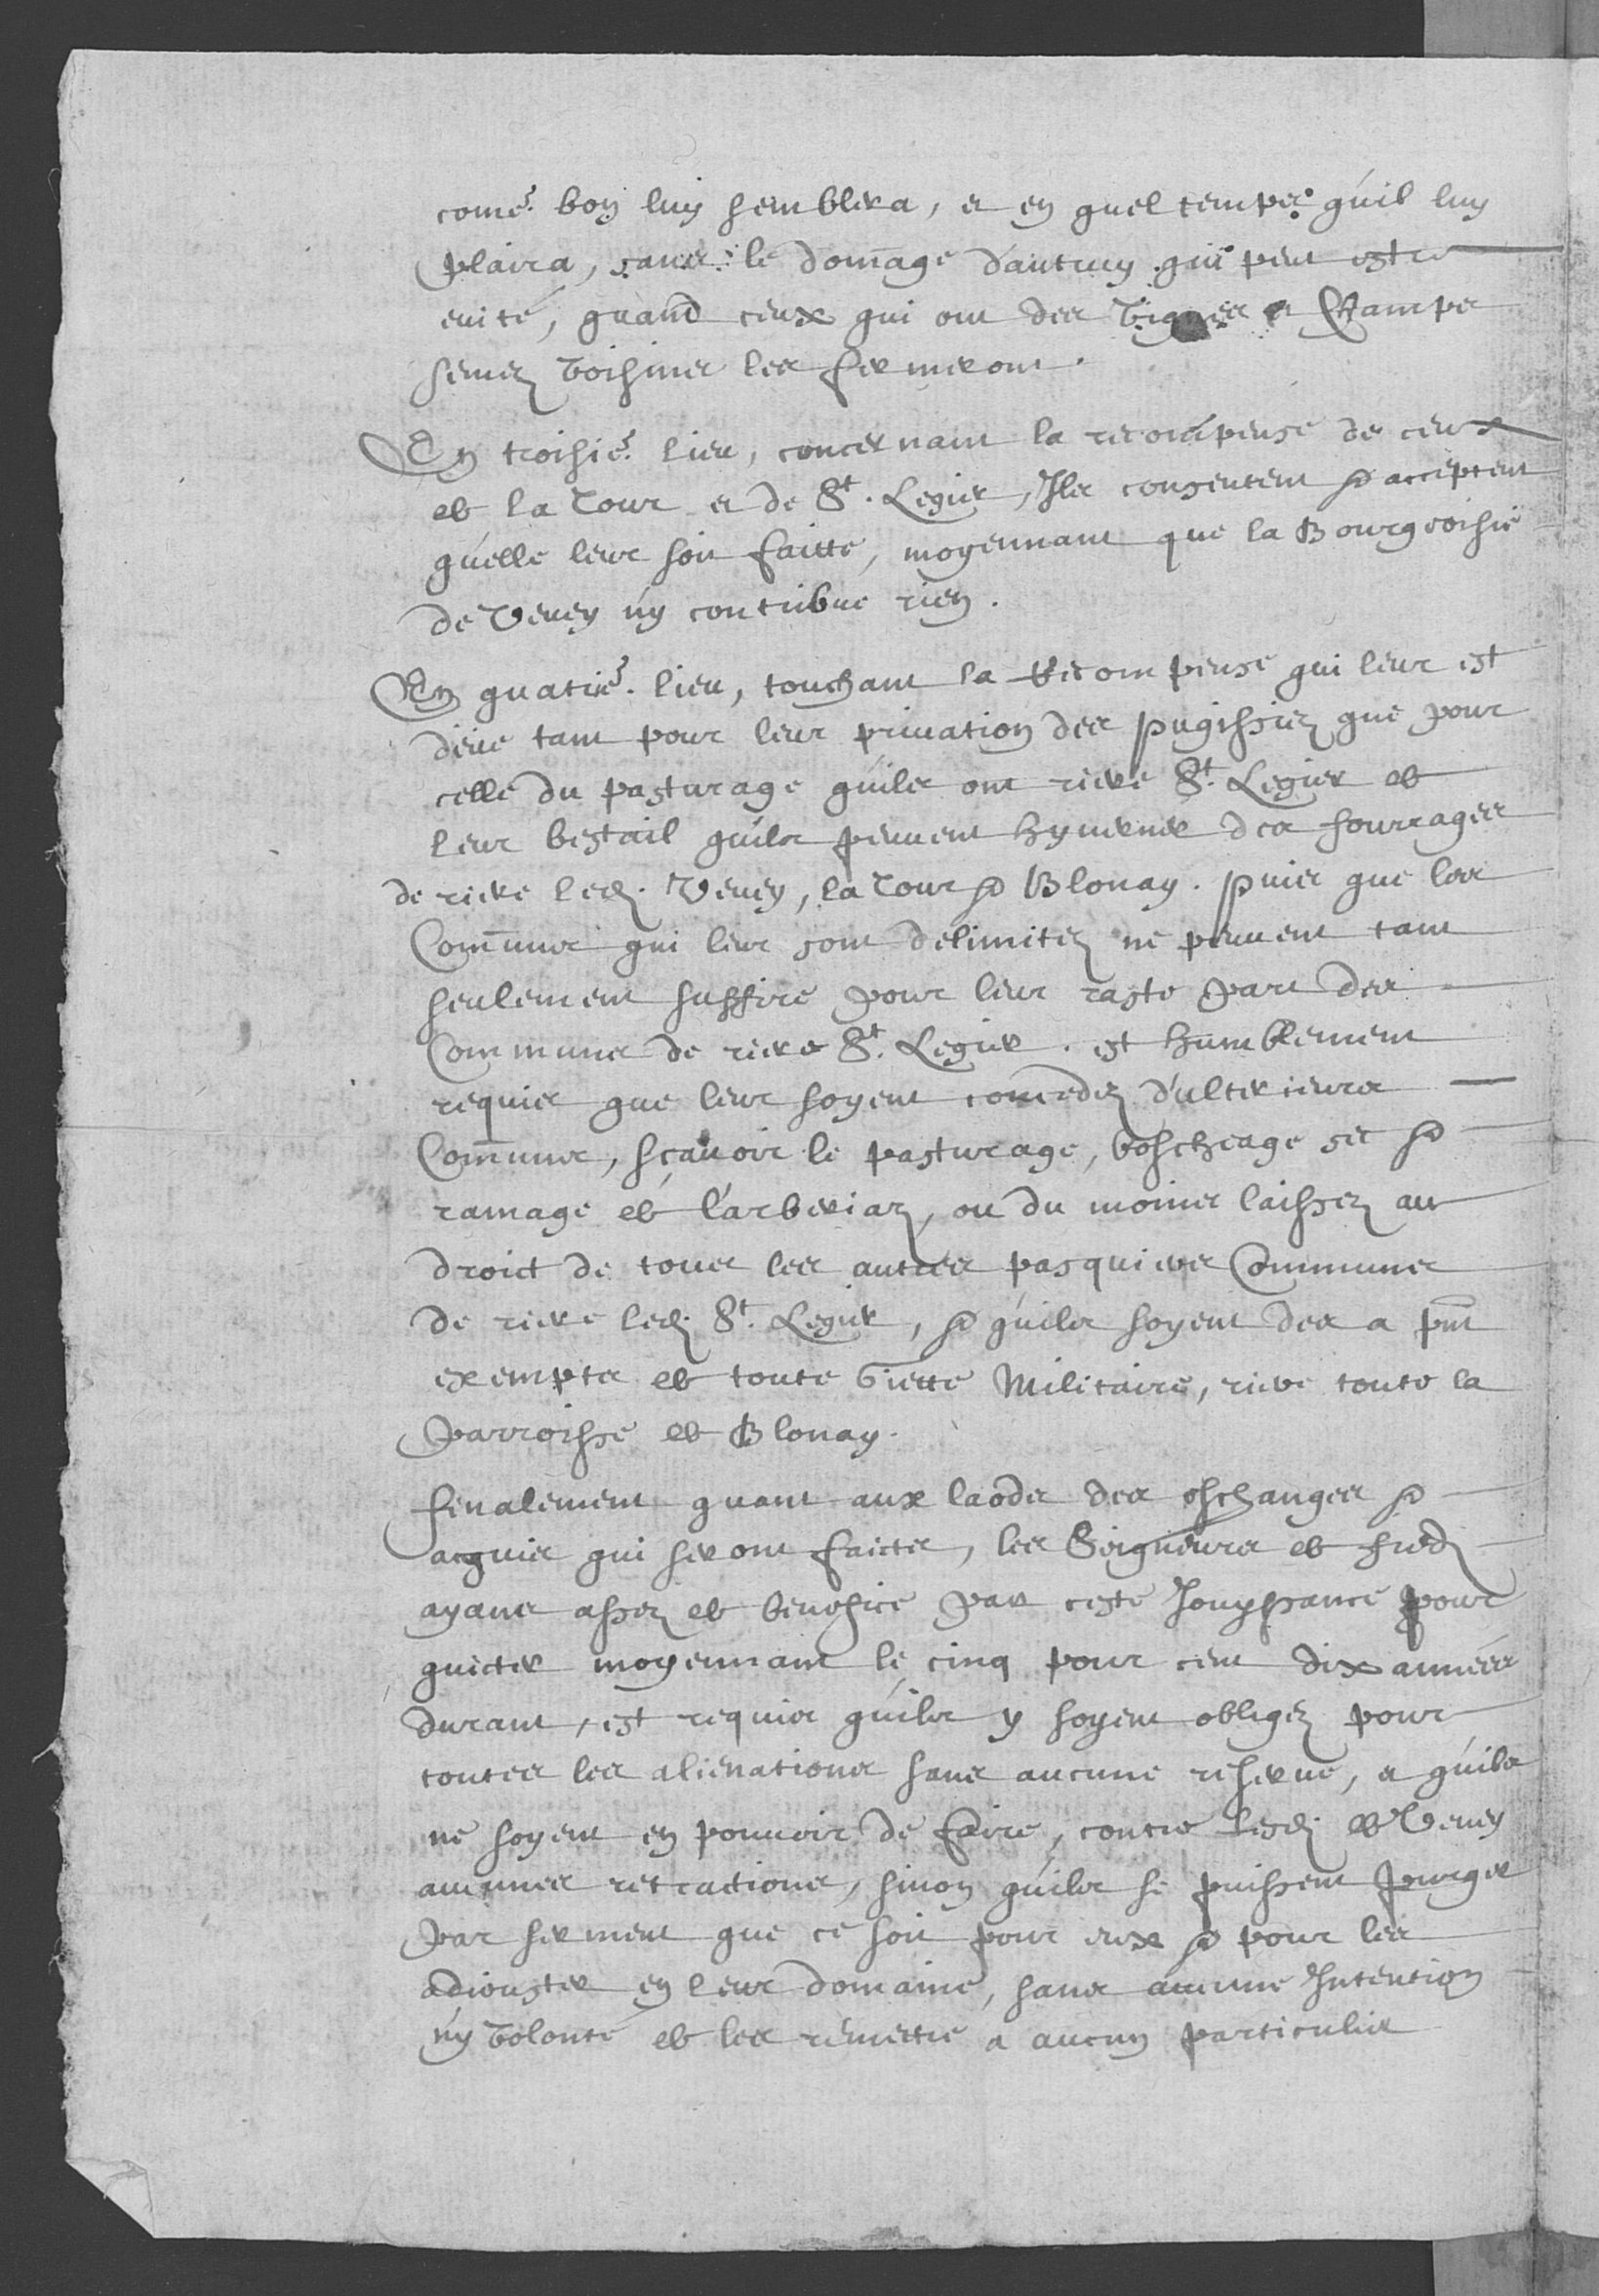 come bon luy semblera, et en quel temps qu'il luy
plaira, sans le domage d'autruy qui peut estre
euité, quand ceux qui ont des vignes et Champs
semez voisins les fermeront.
En troisie. lieu, concernant la recompense de ceux
de la Tour et de St. Legier, Ils consentent & acceptent
qu'elle leur soit faitte, moyennant que la Bourgeoisie
de Veuey n'y contribue rien.
En quatrie. lieu, touchant la Recompense qui leur est
deüe tant pour leur priuation des pugissiez que pour
celle du pasturage qu'ils ont riere St. Legier de
leur bestail qu'ils peuuent hyuerner des fourrages
de riere led. Veuey, la Tour & Blonay. puis que les
Comunes qui leur sont delimitez ne peuuent tant
seulement suffire pour leur raste part des
Communes de riere St. Legier. est humblement
requis que leur soyent concedez d'ulterieures
Comunes, sçauoir le pasturage, boscheage sec &
ramage de l'arberiaz, ou du moins laissez au
droict de tous les autres pasquiers Communs
de riere led. St. Legier, & qu'ils soyent des a pnt
exempts de toute Giette Militaire, riere toute la
Parroisse de Blonay.
Finalement quant aux laods des eschanges &
acquis qui seront faicts, les Seigneurs de fied
ayans assez de benefice par ceste Jouyssance pour
quicter moyennant le cinq pour cent dix années
durant, est requis qu'ils y soyent obligez pour
toutes les alienations sans aucune reserue, et qu'ils
ne soyent en pouuoir de faire, contre lesd. de Veuey
aucunes retractions, sinon qu'ils se puissent purger
par serment que ce soit pour eux & pour les
adiouster en leur domaine, sans aucune Intention
ny volonté de les remettre a aucun particulier